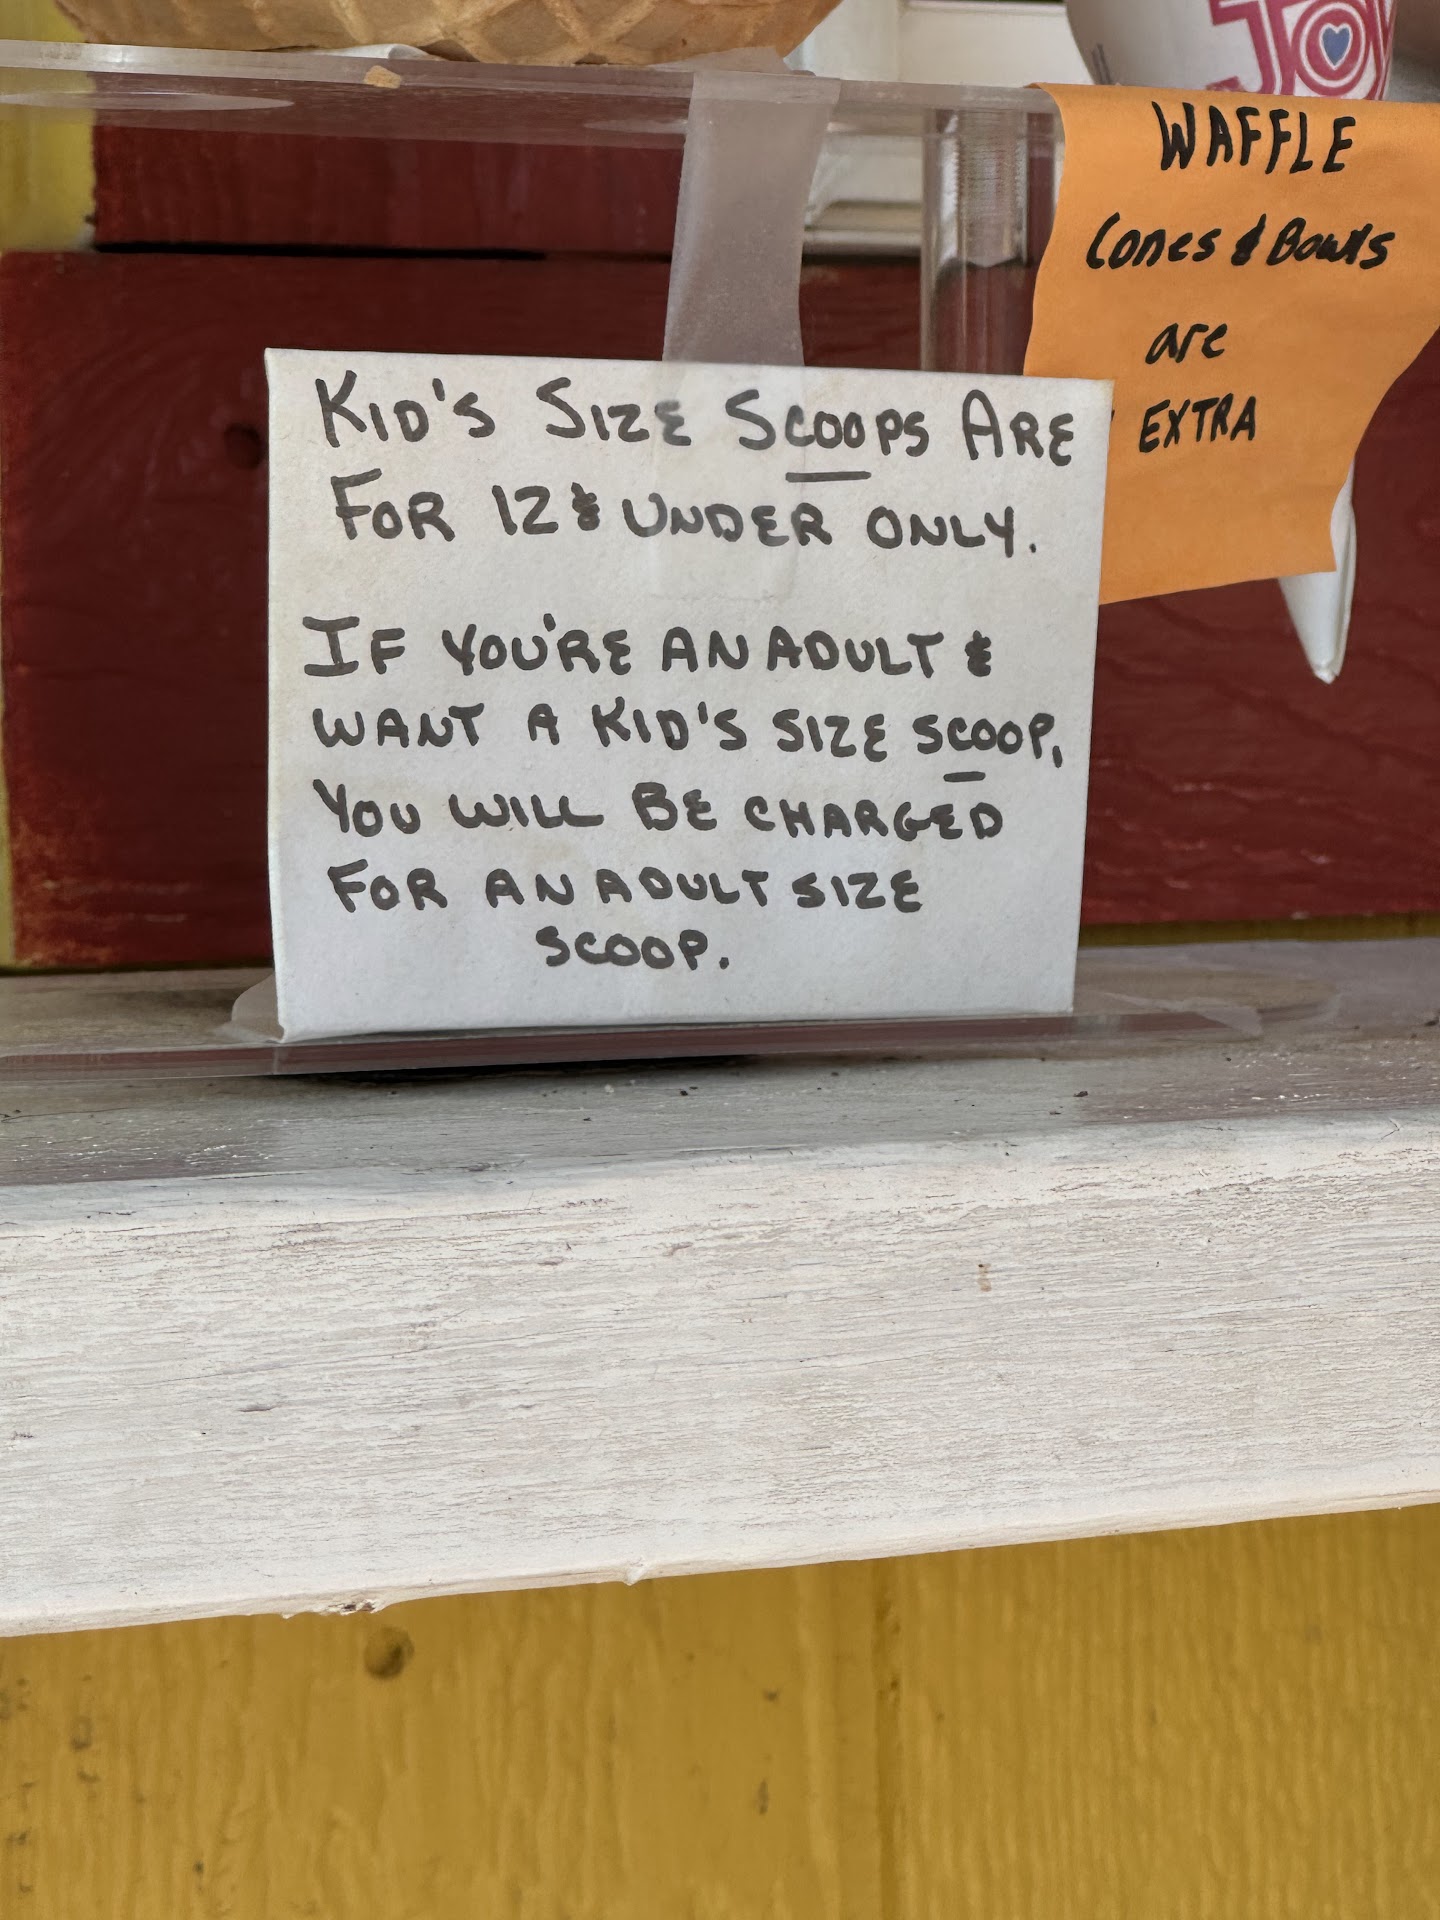 JOY
WAFFLE
Cones & Bowls
are
EXTRA
KID'S SIZE SCOOPS ARE
FOR 12 & UNDER ONLY.
IF YOU'RE AN ADULT &
WANT A KID'S SIZE SCOOP,
YOU WILL BE CHARGED
FOR AN ADULT SIZE
SCOOP.